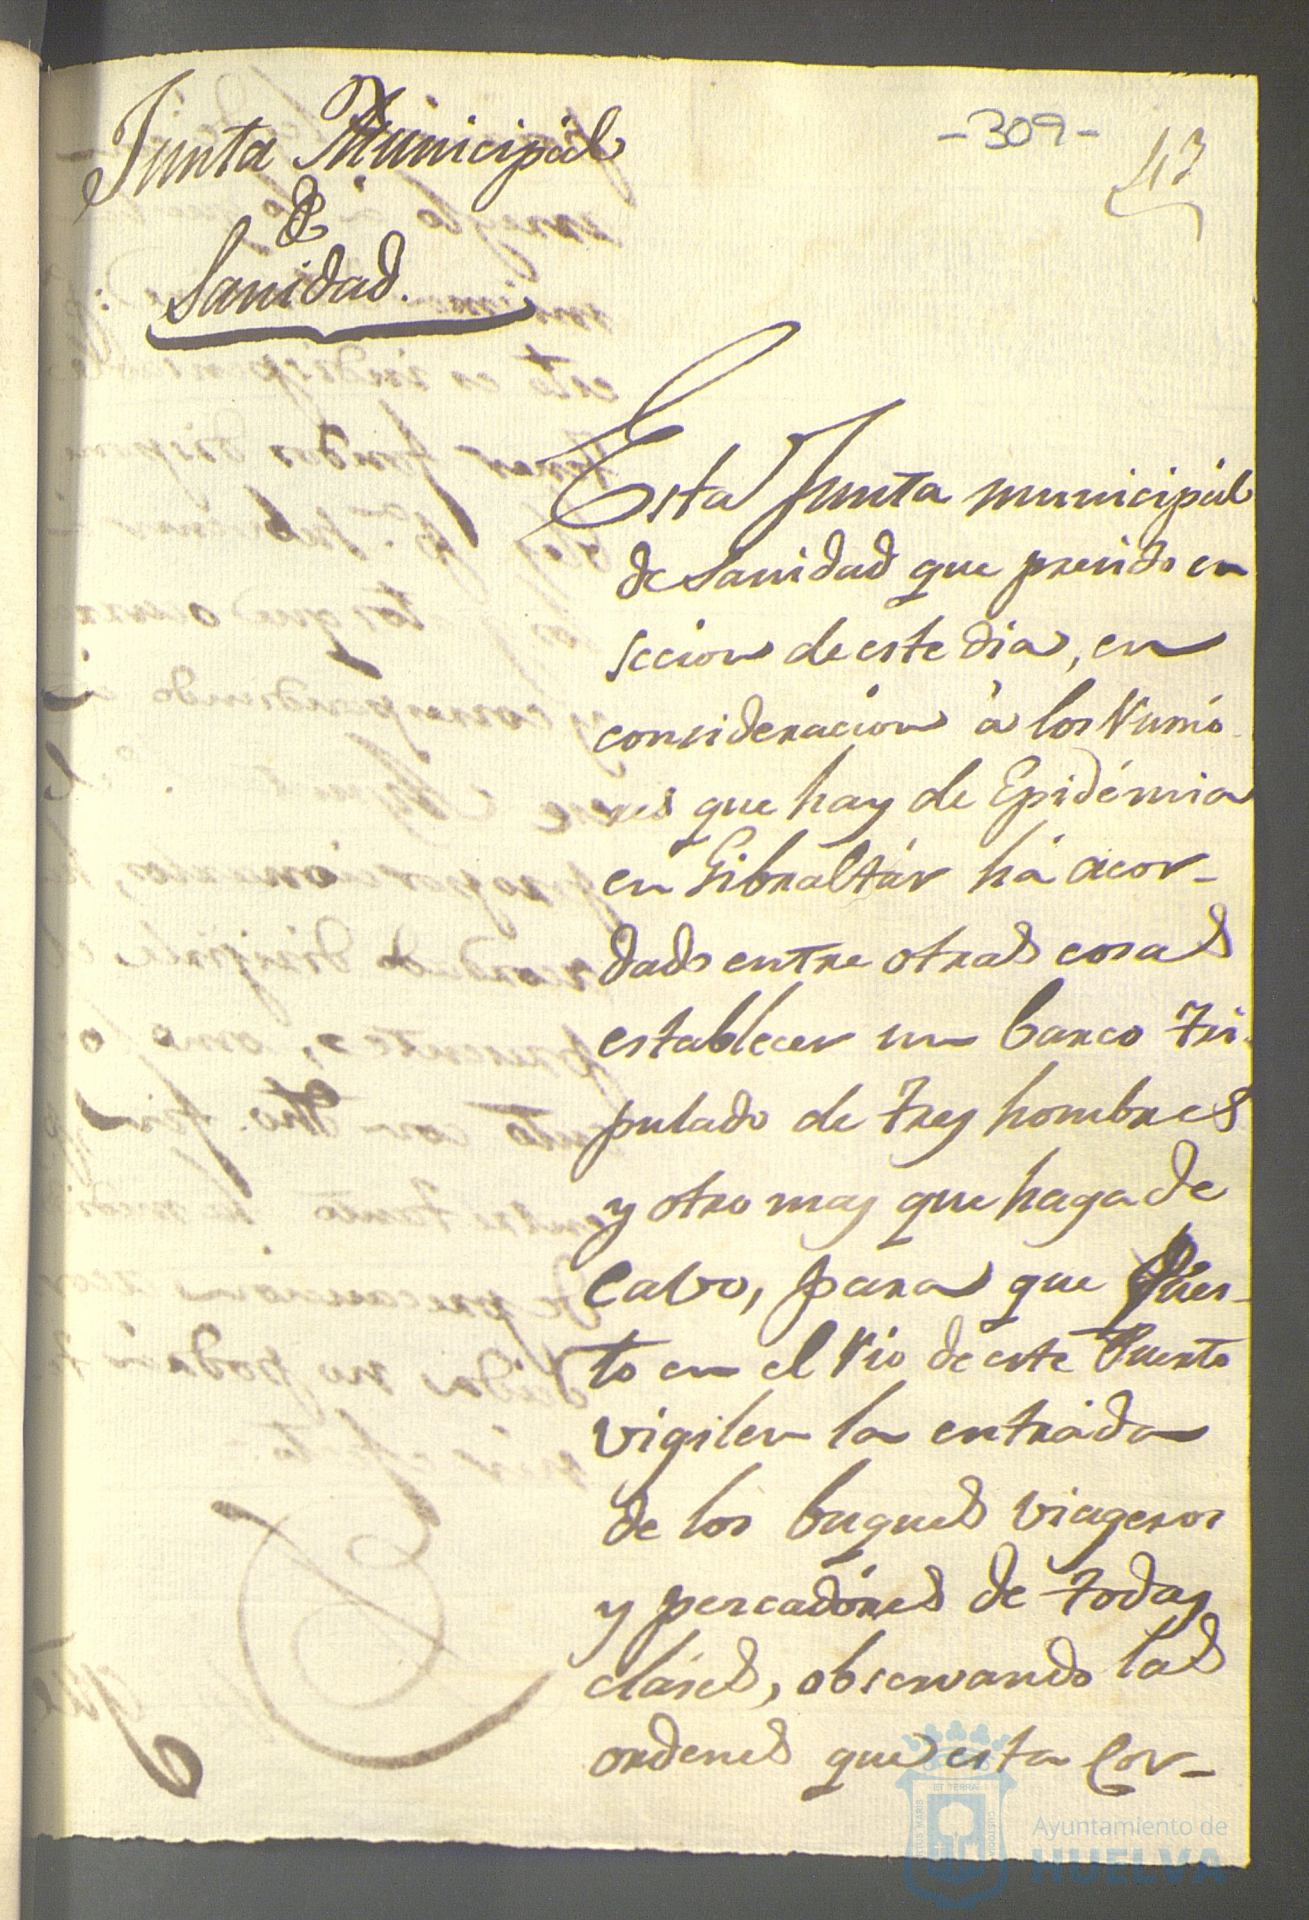 -309-
43
Junta Municipal
de
Sanidad.
Esta Junta municipal
de Sanidad que presido en
seccion de este dia, en
consideracion á los Rumó
res que hay de Epidémia
en Gibraltár há acor-
dado entre otras cosas
establecer un barco tri-
pulado de tres hombres
y otro mas que haga de
Cabo, para que Pues-
to en el Rio de este Puerto
vigilen la entráda
de los buques viageros
y pescadóres de todas
cláses, observando las
ordenes que esta Cor-
Ayuntamiento de
HUELVA